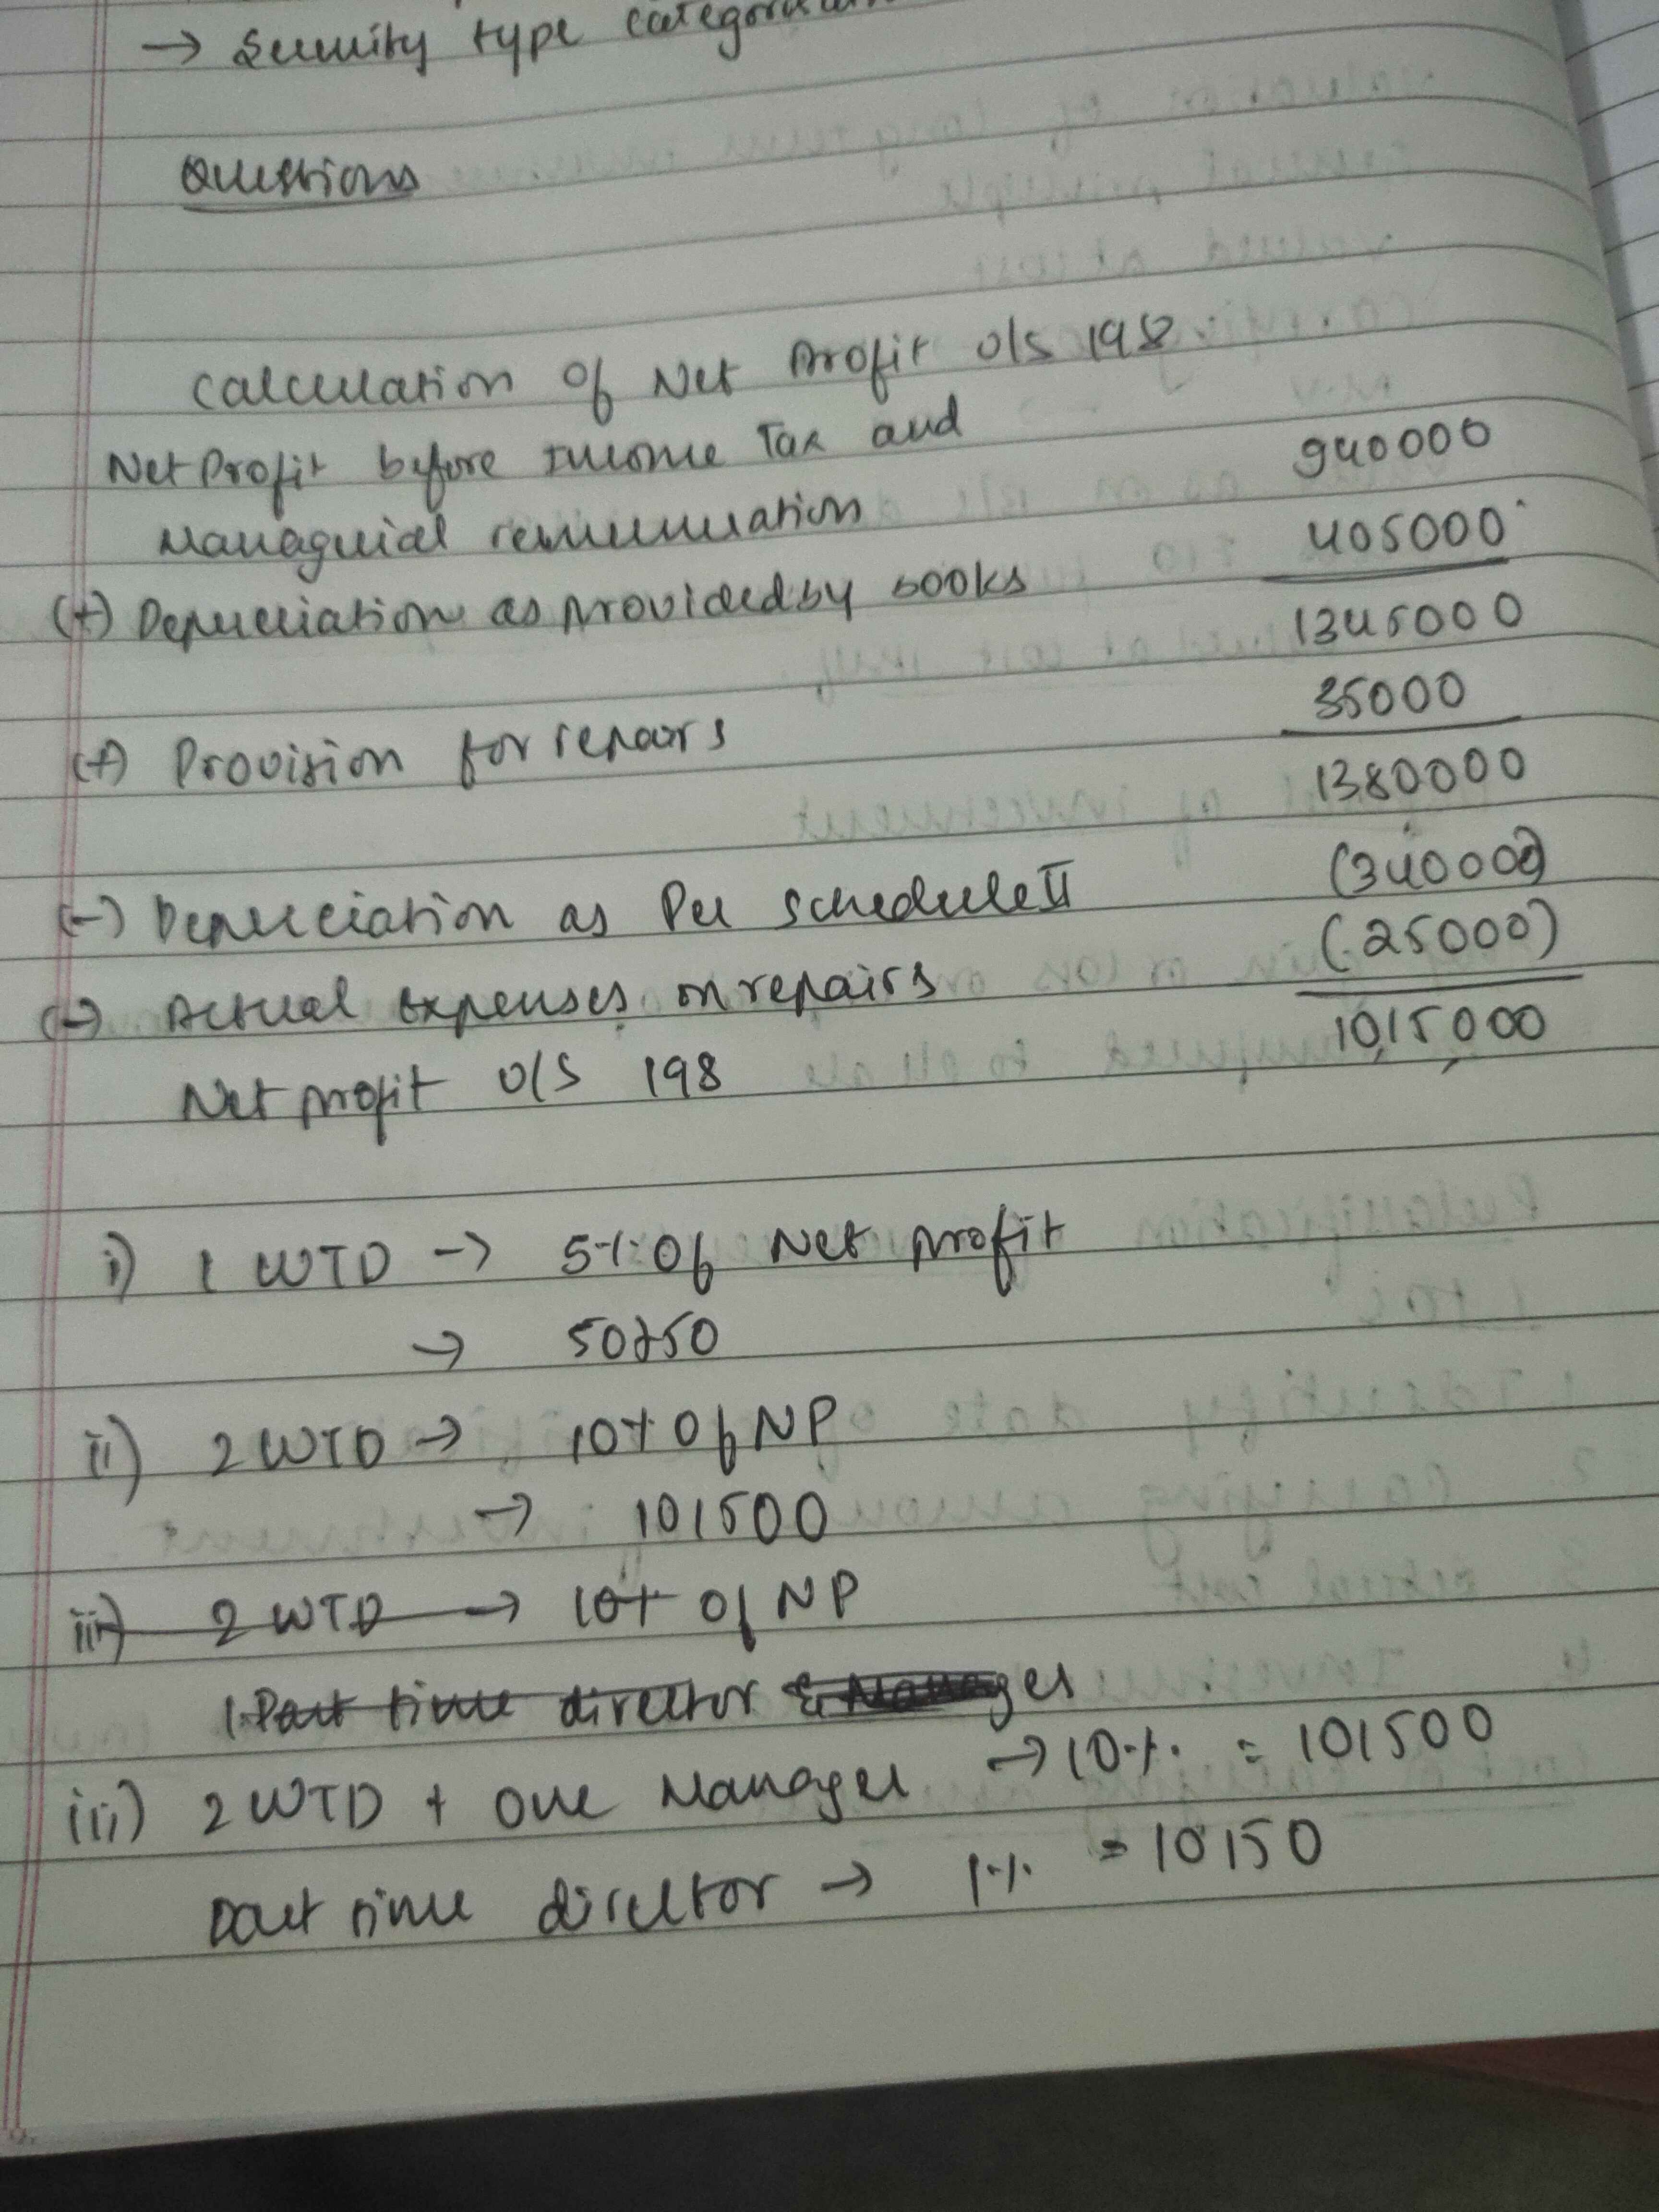 → Security type
Questions
Calculation of Net Profit o/s 198.
Net Profit before Income Tax and 940000
Managerial remuneration
(+) Depreciation as provided by books 405000
1345000
(+) Provision for repairs 35000
1380000
(-) Depreciation as Per schedule II (340000)
(-) Actual expenses on repairs (25000)
Net profit o/s 198 10,15,000
i) 1 WTD → 5% of Net profit
→ 50750
ii) 2 WTD → 10% of NP
→ 101500
iii) 2 WTD → 10% of NP
1 Part time director &
iii) 2 WTD + One Manager → 10% = 101500
Part time director → 1% = 10150